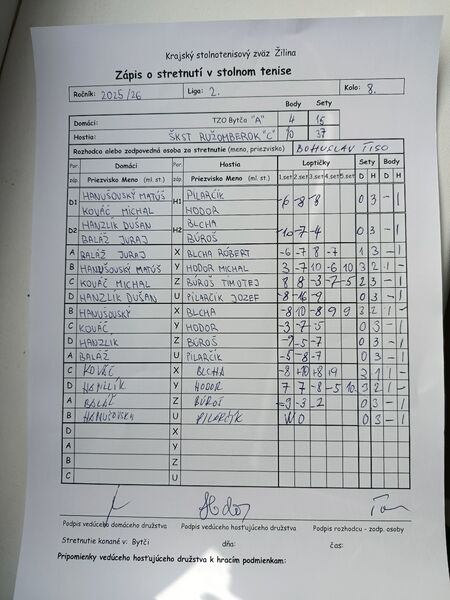 Krajský stolnotenisový zväz Žilina
Zápis o stretnutí v stolnom tenise
Ročník: 2025/26 Liga: 2. Kolo: 8.
Body Sety
Domáci: TZO Bytča "A" 4 15
Hostia: ŠKST RUŽOMBEROK "C" 10 37
Rozhodca alebo zodpovedná osoba za stretnutie (meno, priezvisko) BOHUSLAV TISO
Por. Domáci Por. Hostia Loptičky Sety Body
záp. Priezvisko Meno (ml. st.) záp. Priezvisko Meno (ml. st.) 1.set 2.set 3.set 4.set 5.set D H D H
D1 HANUŠOVSKÝ MATÚŠ H1 PILARČÍK -6 -8 -8 0 3 - 1
KOVÁČ MICHAL HODOR
D2 HANZLIK DUŠAN H2 BLCHA -10 -7 -4 0 3 - 1
BALÁŽ JURAJ BÚROŠ
A BALÁŽ JURAJ X BLCHA RÓBERT -6 -7 8 -7 1 3 - 1
B HANUŠOVSKÝ MATÚŠ Y HODOR MICHAL 3 -7 10 -6 10 3 2 1 -
C KOVÁČ MICHAL Z BÚROŠ TIMOTEJ 8 8 -3 -7 -5 2 3 - 1
D HANZLIK DUŠAN U PILARČIK JOZEF -8 -16 -9 0 3 - 1
B HANUŠOVSKÝ X BLCHA -8 10 -8 9 9 3 2 1 -
C KOVÁČ Y HODOR -3 -7 -5 0 3 - 1
D HANZLIK Z BÚROŠ -9 -5 -7 0 3 - 1
A BALÁŽ U PILARČIK -5 -8 -7 0 3 - 1
C KOVÁČ X BLCHA -8 +10 +8 +9 3 1 1 -
D HANZLIK Y HODOR 7 7 -8 -5 10 3 2 1 -
A BALÁŽ Z BÚROŠ -9 -3 -2 0 3 - 1
B HANUŠOVSKÝ U PILARČÍK W O 0 3 - 1
D X
A Y
B Z
C U
Podpis vedúceho domáceho družstva Podpis vedúceho hosťujúceho družstva Podpis rozhodcu - zodp. osoby
Stretnutie konané v: Bytči dňa: čas:
Pripomienky vedúceho hosťujúceho družstva k hracím podmienkam: